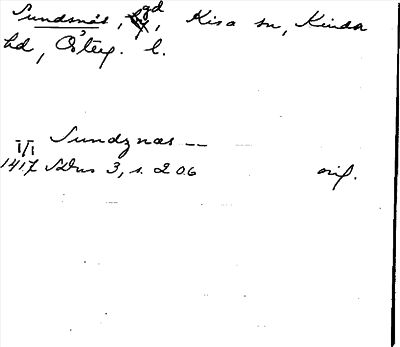 Sundsnäs, gd, Kisa sn, Kinda
hd, Östeg. l.
Sundznæs --
1/1
1417 SDns 3, s. 206 orig.